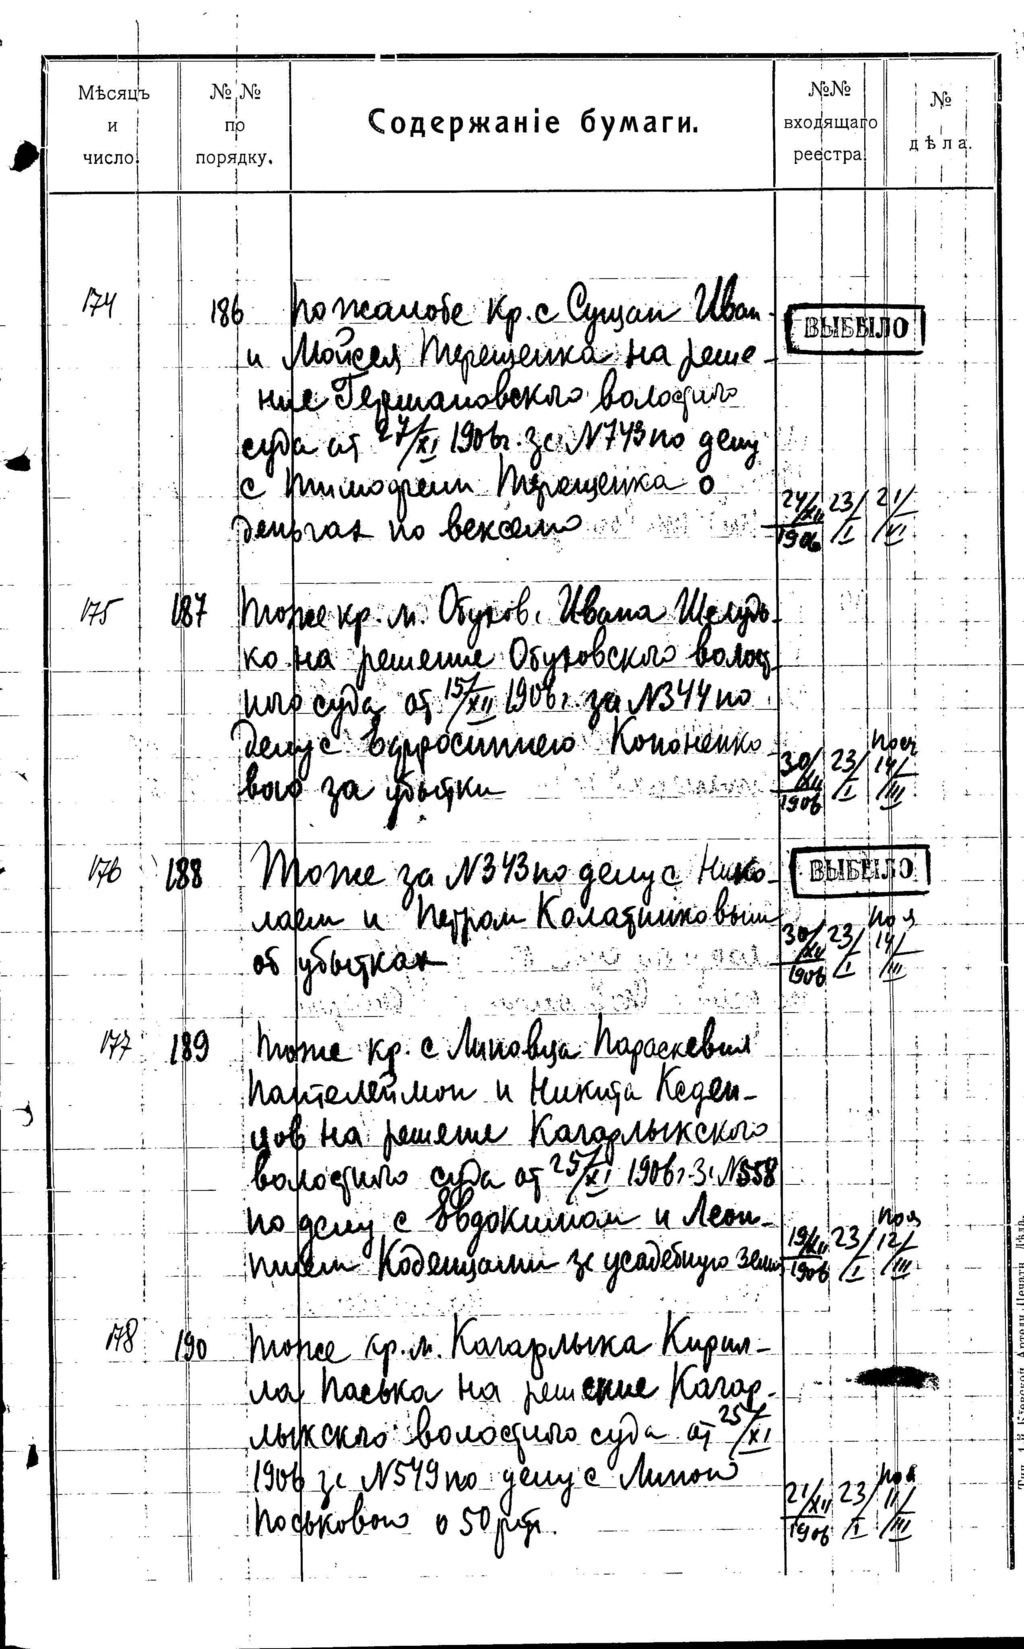 Мѣсяцъ и число.
№ № по порядку.
Содержаніе бумаги.
№№ входящаго реестра
№ дѣла.
174 186 По жалобе кр. с Сущан Иван
ВЫБЫЛО
и Мойсея Терещенка на реше-
ние Германовского волостного
суда от 27/XI 1906г. за N743 по делу
с Тимофеем Терещенка о
деньгах по векселю
24/XII 1906 23/I 21/VI
175 187 Тоже кр. м. Обухов. Ивана Шелудь-
ко на решение Обуховского волост
ного суда от 15/XII 1906г. за N344 по
делу с Кононенко-
вою за убытки
30/XII 1906 23/I 14/III
176 188 Тоже за N343 по делу с Нико-
ВЫБЫЛО
лаем и Петром Колатниковым
об убытках
30/XII 1906 23/I 14/III
177 189 Тоже кр. с Липовца Параскевия
Пантелеймон и Никита Кеден-
цов на решение Кагарлыкского
волостного суда от 25/XI 1906г. за N558
по делу с Евдокимом и Леон-
тием Коденцами за усадебную земл
19/XII 1906 23/I 12/III
178 190 Тоже кр. м. Кагарлыка Кирил-
ла Паська на решение Кагар-
лыкского волостного суда от 25/XI
1906 за N549 по делу с
Поськовою о 50 руб.
21/XII 1906 23/I 11/III